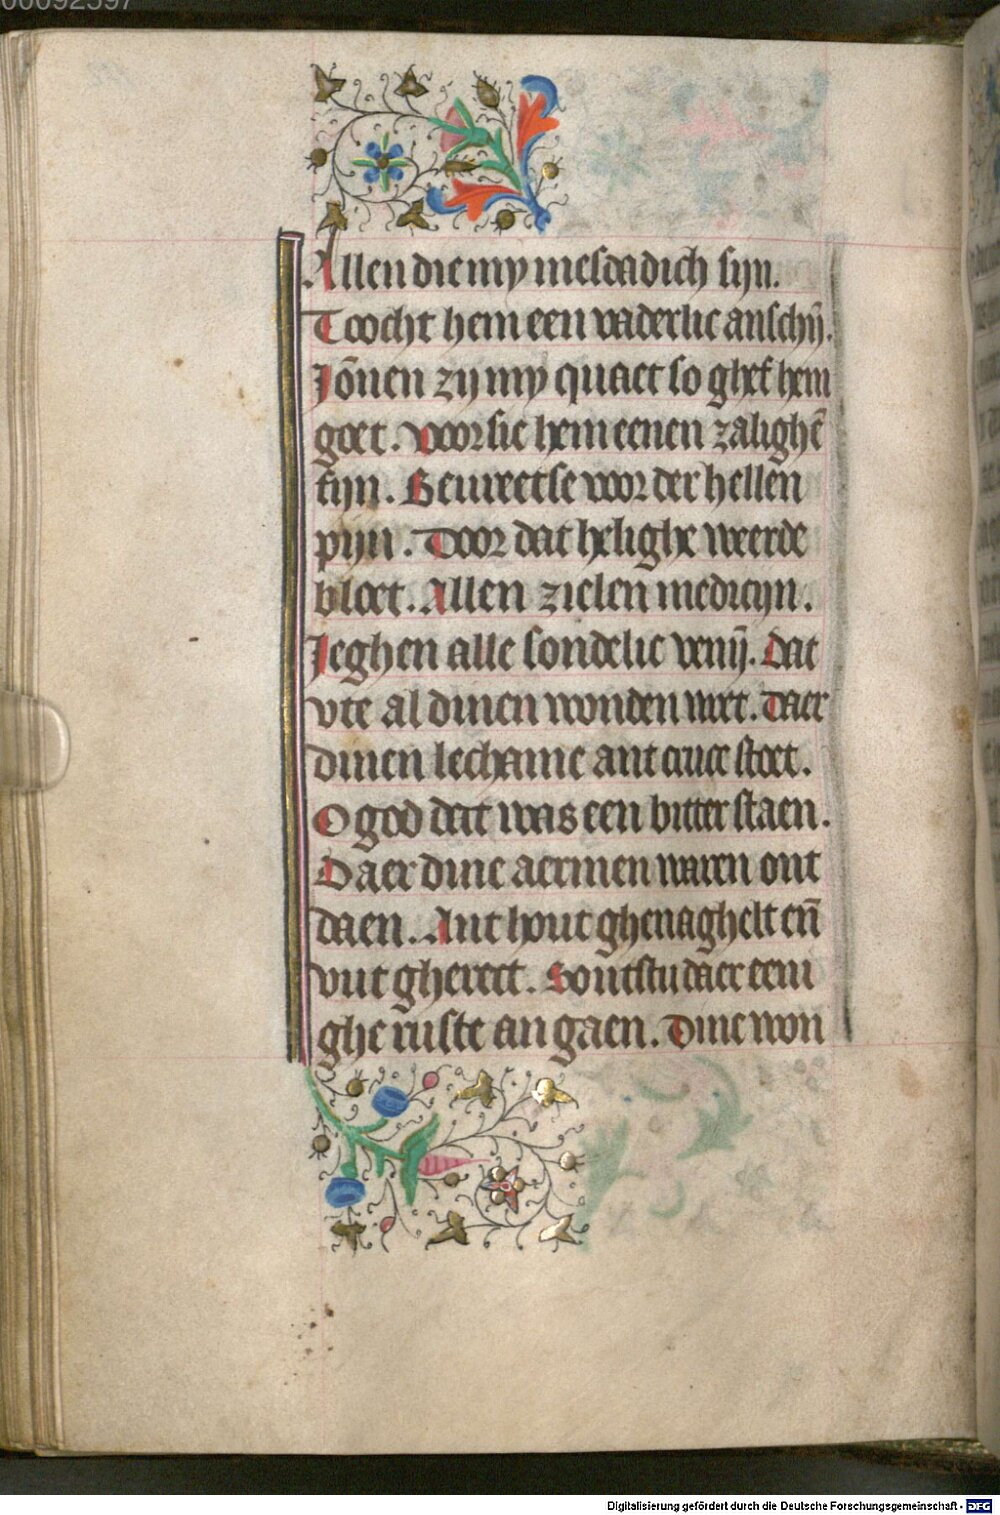 00092597
Allen die my mesdadich sijn.
Toocht hem een vaderlic anschiȷ̄.
Jōnen zij my quaet so ghef hem
goet. Voorsie hem eenen zalighē
fijn. Bewreetse voor der hellen
pijn. Door dat helighe weerde
bloet. Allen zielen medicijn.
Jeghen alle sondelic veniȷ̄. Dat
vte al dinen wonden vliet. Daer
dinen lechame ant cruce stoet.
O god dat was een bitter staen.
Daer dine aermen waren ont
daen. Ant hout ghenaghelt eñ
vut gherect. Sontstu daer eeni
ghe ruste an gaen. Dine won
Digitalisierung gefördert durch die Deutsche Forschungsgemeinschaft - DFG